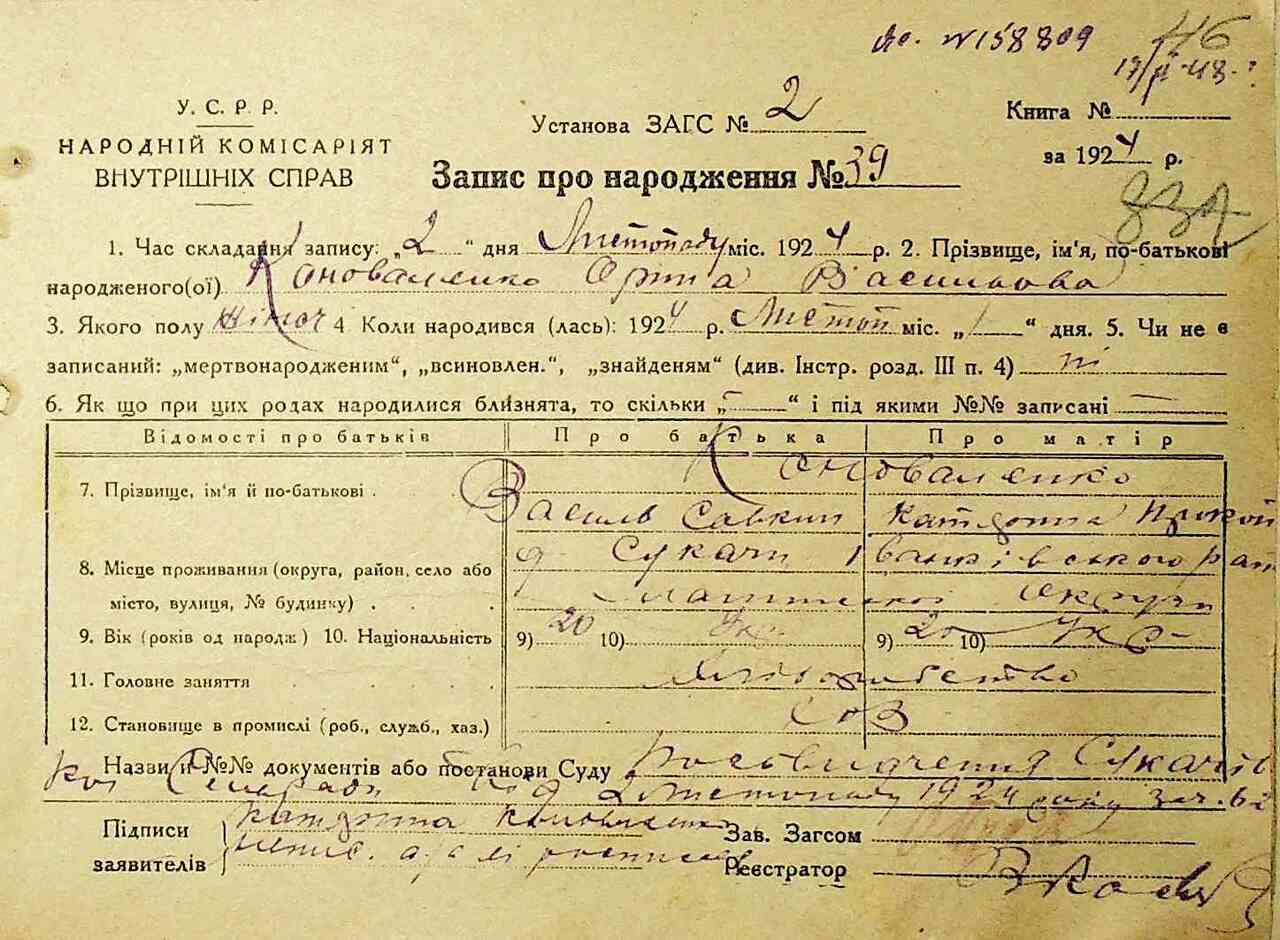 № 158809 46
У. С. Р. Р.
НАРОДНІЙ КОМІСАРІЯТ
ВНУТРІШНІХ СПРАВ
Установа ЗАГС № 2
Запис про народження № 39
Книга №
за 1924 р.
1. Час складання запису: „2“ дня Листопаду міс. 1924 р. 2. Прізвище, ім'я, по-батькові
народженого(ої) Коноваленко Орина Васильова
3. Якого полу жіноч 4 Коли народився (лась): 1924 р. Листоп міс. „1“ дня. 5. Чи не є
записаний: „мертвонародженим“, „всиновлен.“, „знайденям“ (див. Інстр. розд. III п. 4) ні
6. Як що при цих родах народилися близнята, то скільки „—“ і під якими №№ записані —
Відомості про батьків Про батька Про матір
7. Прізвище, ім'я й по-батькові . Коноваленко
Василь Савкин Катерина
8. Місце проживання (округа, район, село або Сукачи Іванківського рай
місто, вулиця, № будинку) . . округи
9. Вік (років од народж) 10. Національність 9) 20 10) Укр. 9) 20 10) Укр
11. Головне заняття . . . . . Хліборобство
12. Становище в промислі (роб., служб., хаз.)
Назви й №№ документів або постанови Суду Посвидчення Сукачів
кої Сельради від 2 Листопаду 1924 року за ч. 62
Підписи
заявителів
Катерина Коноваленко
Зав. Загсом
Реєстратор